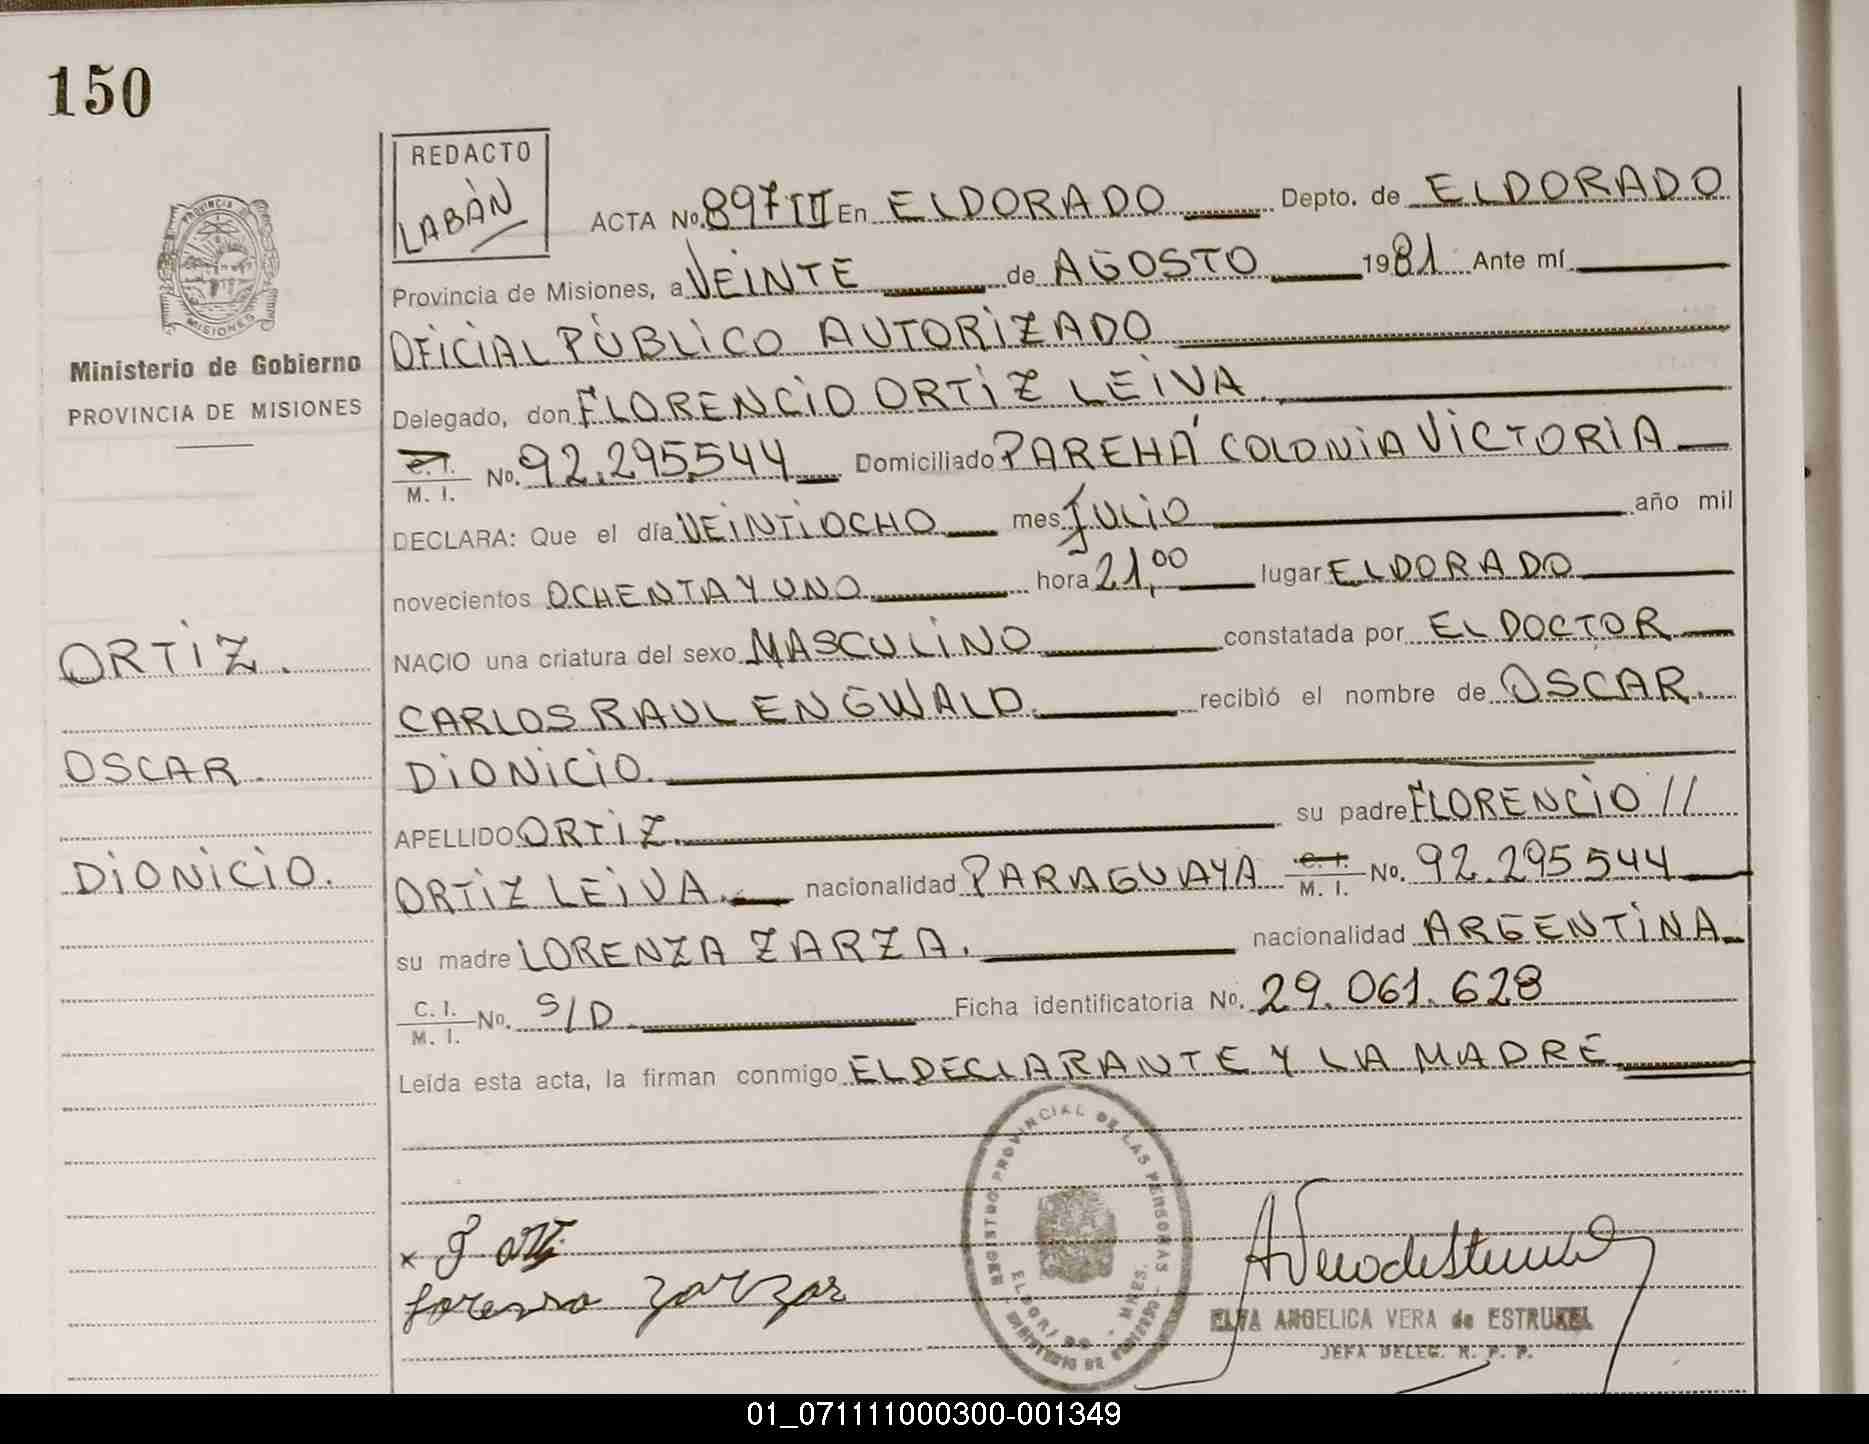 150
REDACTO
LABÁN
ACTA No. 897 III En ELDORADO Depto. de ELDORADO
Provincia de Misiones, a VEINTE de AGOSTO 1981 Ante mí
OFICIAL PÚBLICO AUTORIZADO
Delegado, don FLORENCIO ORTIZ LEIVA.
C. I.
M. I. No. 92.295.544 Domiciliado PAREHÁ COLONIA VICTORIA
DECLARA: Que el día VEINTIOCHO mes JULIO año mil
novecientos OCHENTA Y UNO hora 21,00 lugar ELDORADO
NACIO una criatura del sexo MASCULINO constatada por EL DOCTOR
CARLOS RAUL ENGWALD. recibió el nombre de OSCAR.
DIONICIO.
APELLIDO ORTIZ. su padre FLORENCIO //
ORTIZ LEIVA. nacionalidad PARAGUAYA C. I.
M. I. No. 92.295.544
su madre LORENZA ZARZA. nacionalidad ARGENTINA
C. I.
M. I. No. S/D Ficha identificatoria No. 29.061.628
Leída esta acta, la firman conmigo EL DECLARANTE Y LA MADRE
PROVINCIA DE
MISIONES
Ministerio de Gobierno
PROVINCIA DE MISIONES
ORTIZ.
OSCAR.
DIONICIO.
x
Lorenza zarza
REGISTRO PROVINCIAL DE LAS PERSONAS
ELDORADO - MNES.
MINISTERIO DE GOBIERNO
ELVA ANGELICA VERA de ESTRUKEL
JEFA DELEG. R. P. P.
01_071111000300-001349